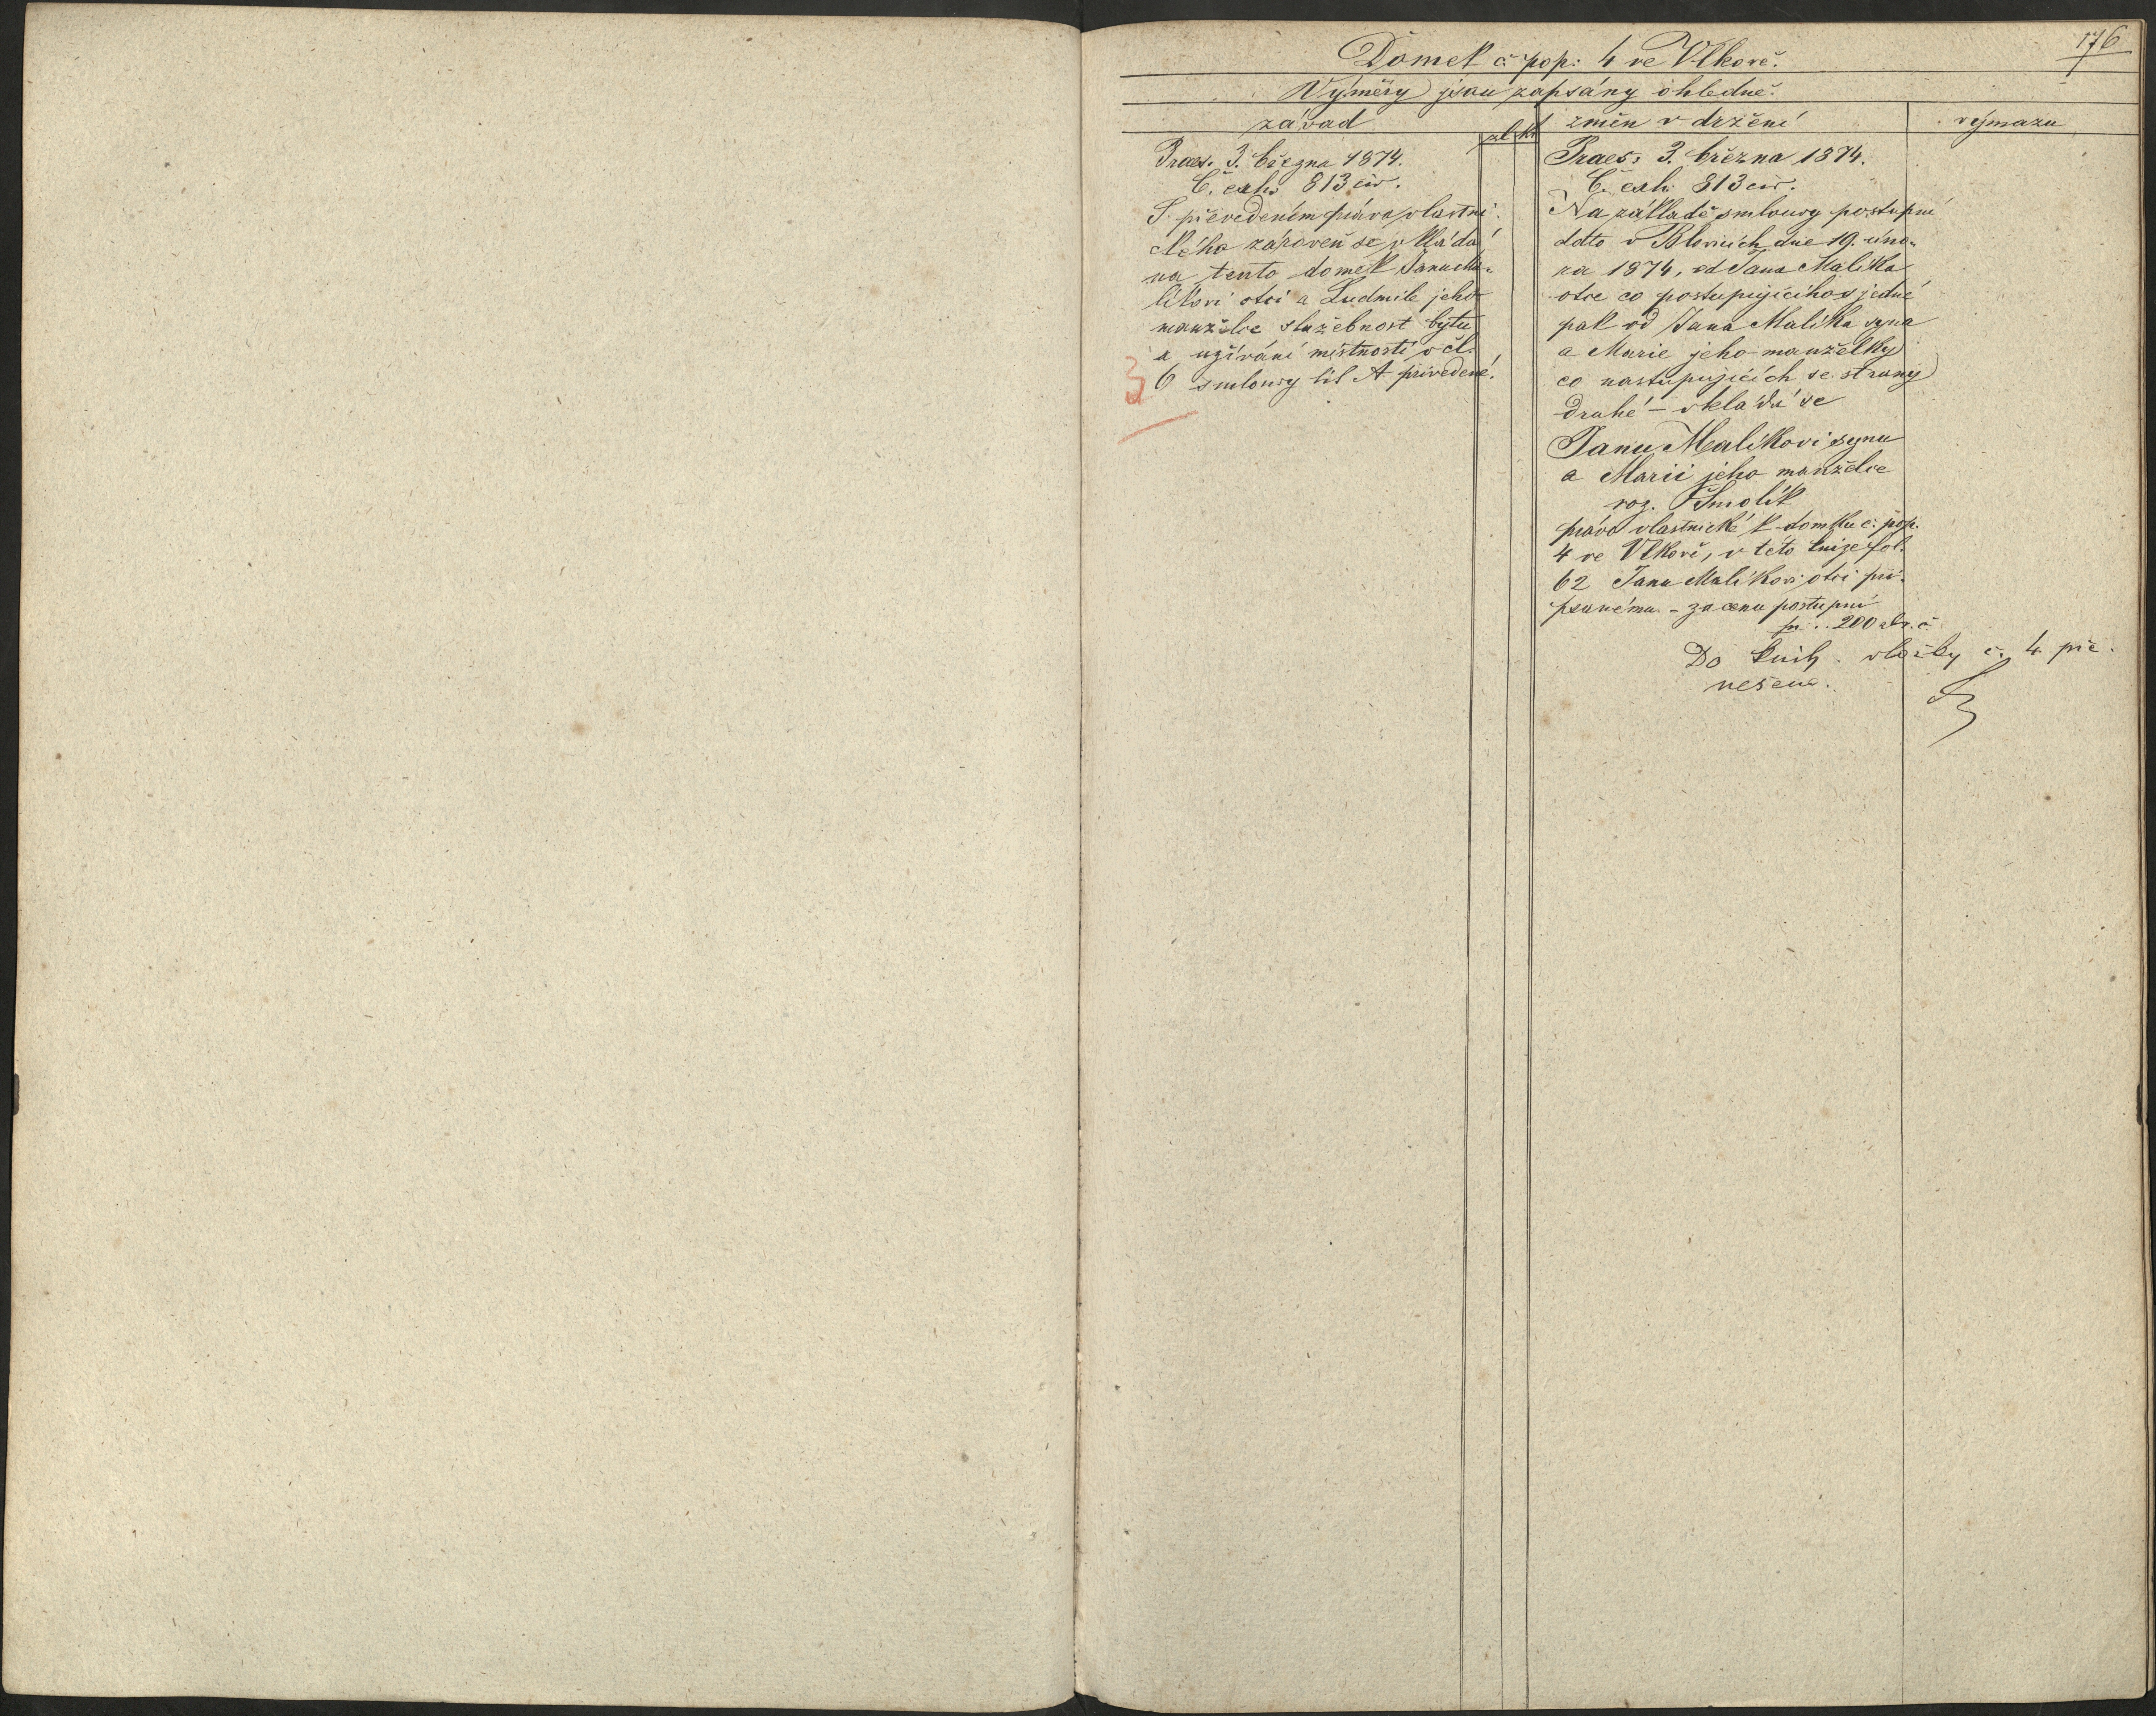 176
Domek č. pop: 4 ve Vlkově.
Výměry jsau zapsány ohledně.
závad
zl kr
změn v držení
výmazu
Praes. 3. března 1874.
Č. exh. 813 civ.
S převedením práva vlastni-
ckého zároveň se vkládá
na tento domek Janu Ma-
líkovi otci a Ludmile jeho
manželce služebnost bytu
a užívání místností v čl.
6 smlouvy lit A přivedené.
Praes: 3. března 1874.
Č. exh. 813 civ.
Na základě smlouvy postupní
ddto v Blovicích dne 19. úno-
ra 1874, od Jana Malíka
otce co postupujícího s jedné
pak od Jana Malíka syna
a Marie jeho manželky
co nastupujících se strany
druhé – vkládá se
Janu Malíkovi synu
a Marii jeho manželce
roz. Smolík
právo vlastnické k domku č. pop.
4 ve Vlkově, v této knize fol.
62 Janu Malíkovi otci při-
psanému – za cenu postupní
pr .. 200 zl. r. č.
Do knih. vložky č. 4 pře-
nešeno.